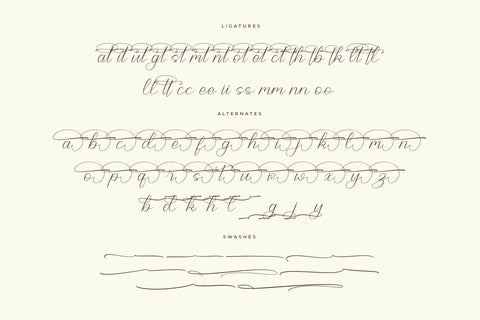 LIGATURES
at it ut gt st mt nt ot et ct th tb tk ltt tl
ll tt cc ee ii ss mm nn oo
ALTERNATES
a b c d e f g h i j k l m n
o p q r s t u v w x y z
b d k h l g j y
SWASHES